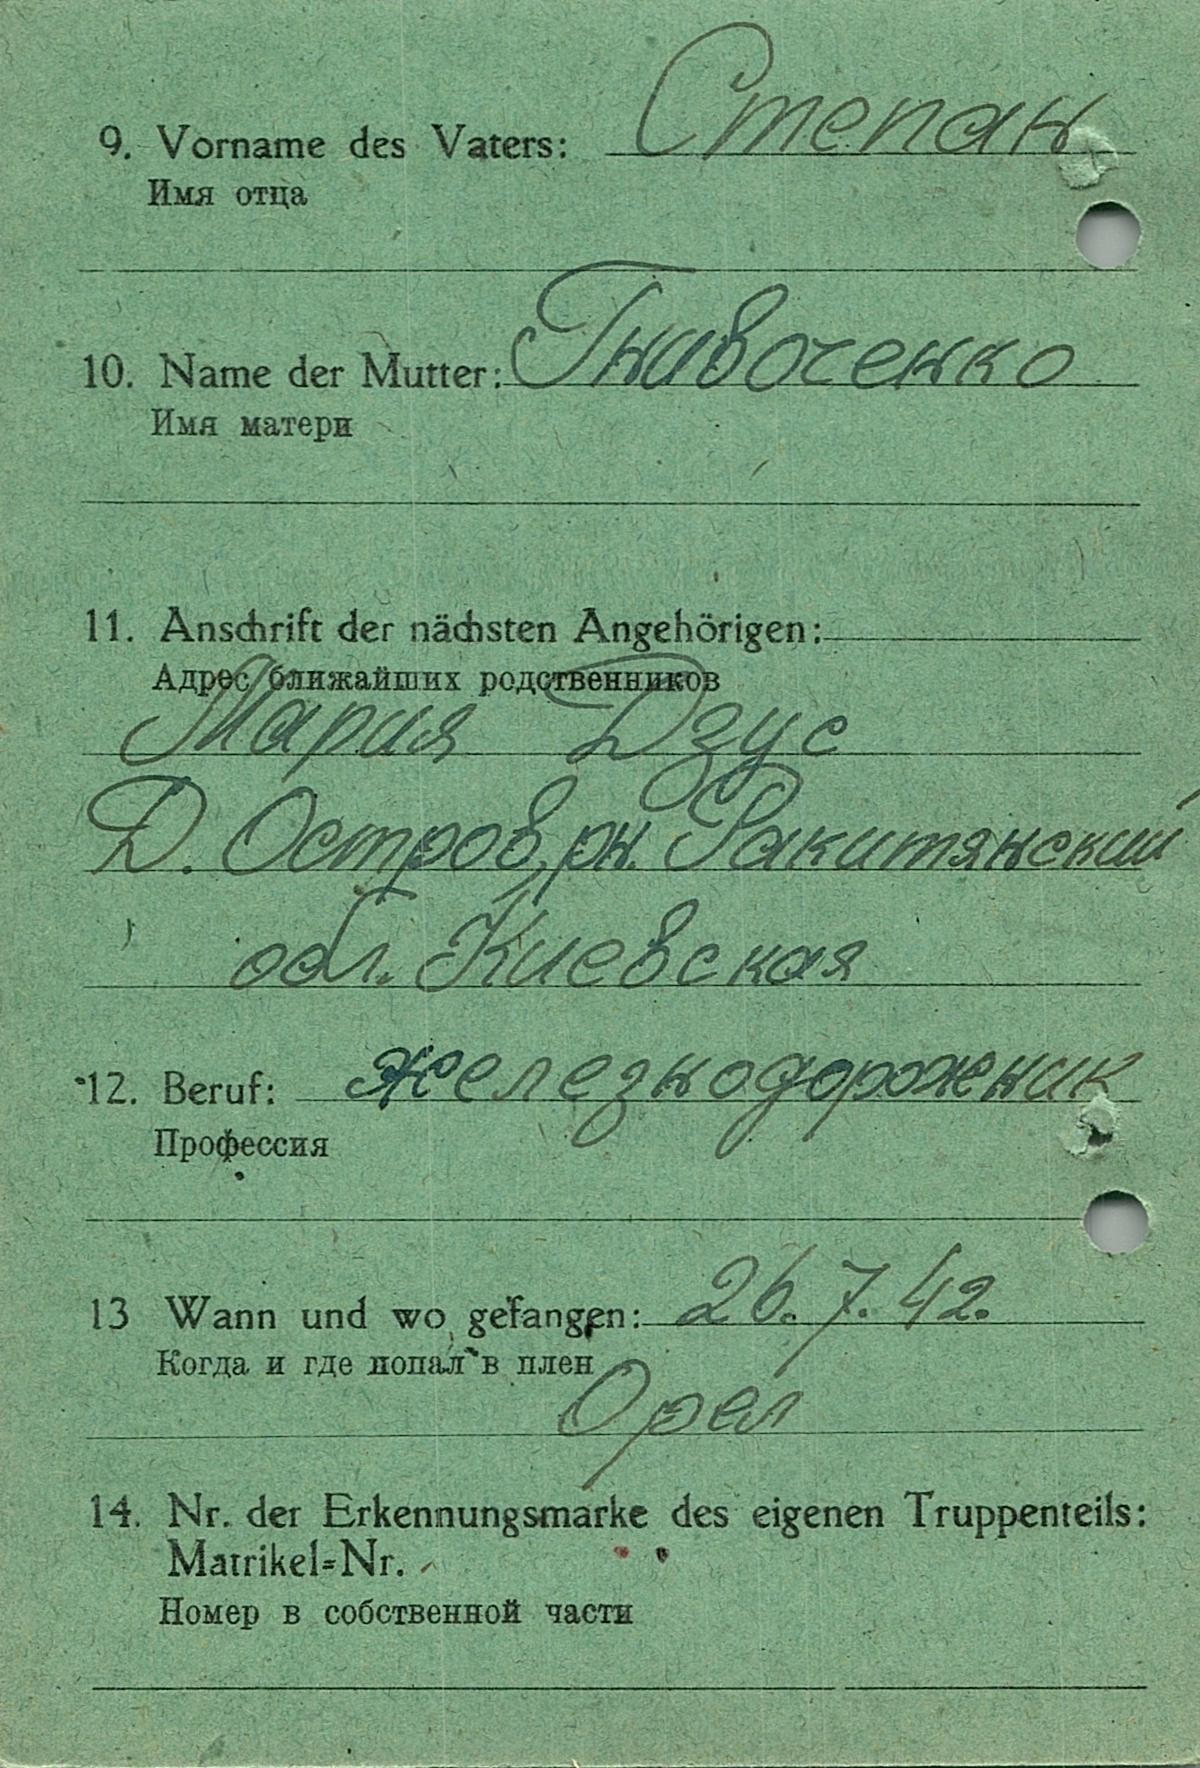 9. Vorname des Vaters: Степан
Имя отца
10. Name der Mutter: Гнивоченко
Имя матери
11. Anschrift der nächsten Angehörigen:
Адрес ближайших родственников
Мария Дзус
Д. Остров, рн. Ракитянский
обл. Киевская
12. Beruf: железнодорожник
Профессия
13 Wann und wo gefangen: 26. 7. 42.
Когда и где попал в плен
Орел
14. Nr. der Erkennungsmarke des eigenen Truppenteils:
Matrikel=Nr.
Номер в собственной части